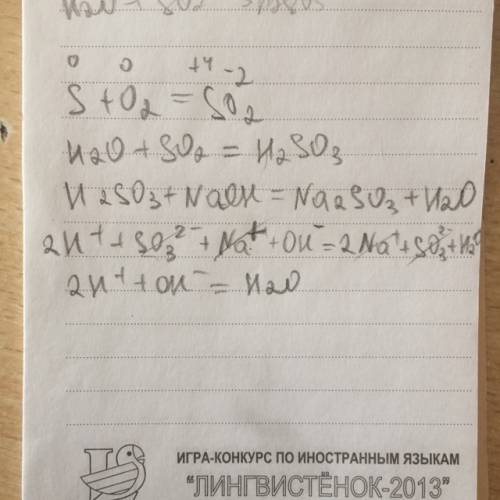 0 0 +4 -2
S + O₂ = SO₂
H₂O + SO₂ = H₂SO₃
H₂SO₃ + NaOH = Na₂SO₃ + H₂O
2H⁺ + SO₃²⁻ + Na⁺ + OH⁻ = 2Na⁺ + SO₃²⁻ + H₂O
2H⁺ + OH⁻ = H₂O
ИГРА-КОНКУРС ПО ИНОСТРАННЫМ ЯЗЫКАМ
“ЛИНГВИСТЁНОК-2013”